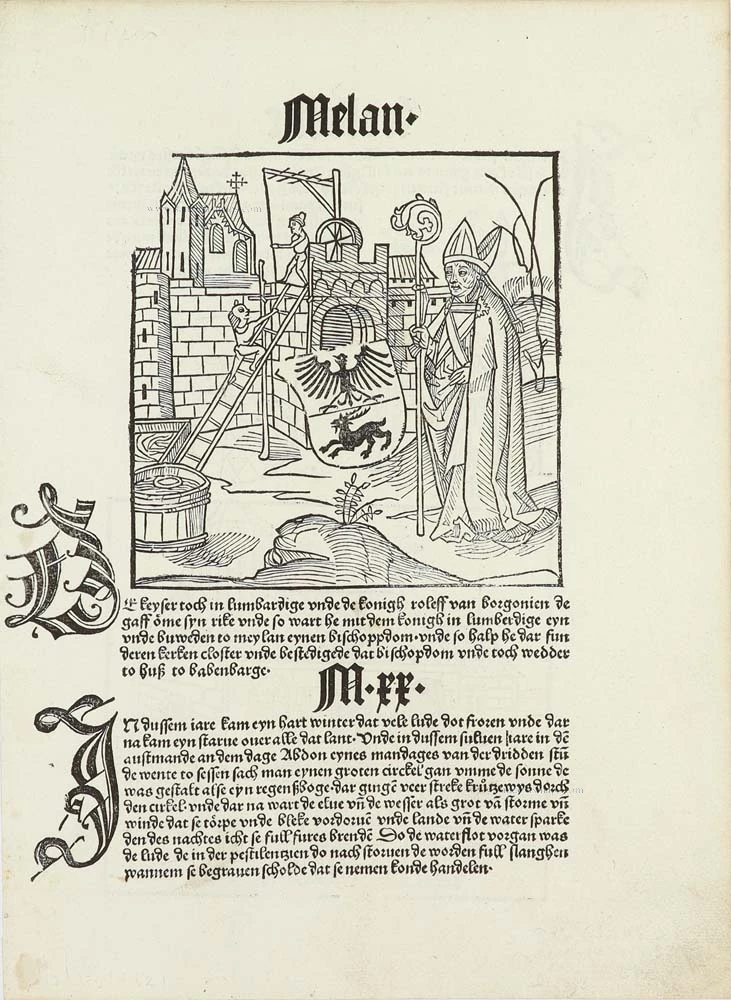 Melan·
DE keyser toch in lumbardige vnde de konigh roleff van borgonien de
gaff ōme syn rike vnde so wart he mit dem konigh in lumberdige eyn
vnde buweden to meylan eynen bischoppdom·vnde so halp he dar fun
deren kerken closter vnde bestēdigede dat bischopdom vnde toch wedder
to huß to babenbarge·
M·xx·
IN dussem iare kam eyn hart winter dat vele lude dot froren vnde dar
na kam eyn starue ouer alle dat lant·Vnde in dussem suluen iare in dē
austmande an dem dage Abdon eynes mandages van der dridden stūn
de wente to sessen sach man eynen groten circkel gan vmme de sonne de
was gestalt alse eyn regenßboge·dar gingē veer streke krützewys dorch
den cirkel·vnde dar na wart de elue vn̄ de wesser als grot vā storme vn̄
winde dat se tōrpe vnde bleke vordoruē vnde lande vn̄ de water sparke
den des nachtes icht se full fures brendē So de waterflot vorgan was
de lude de in der pestilentzien do nach storuen de worden full slanghen
wannem se begrauen scholde dat se nemen konde handelen·